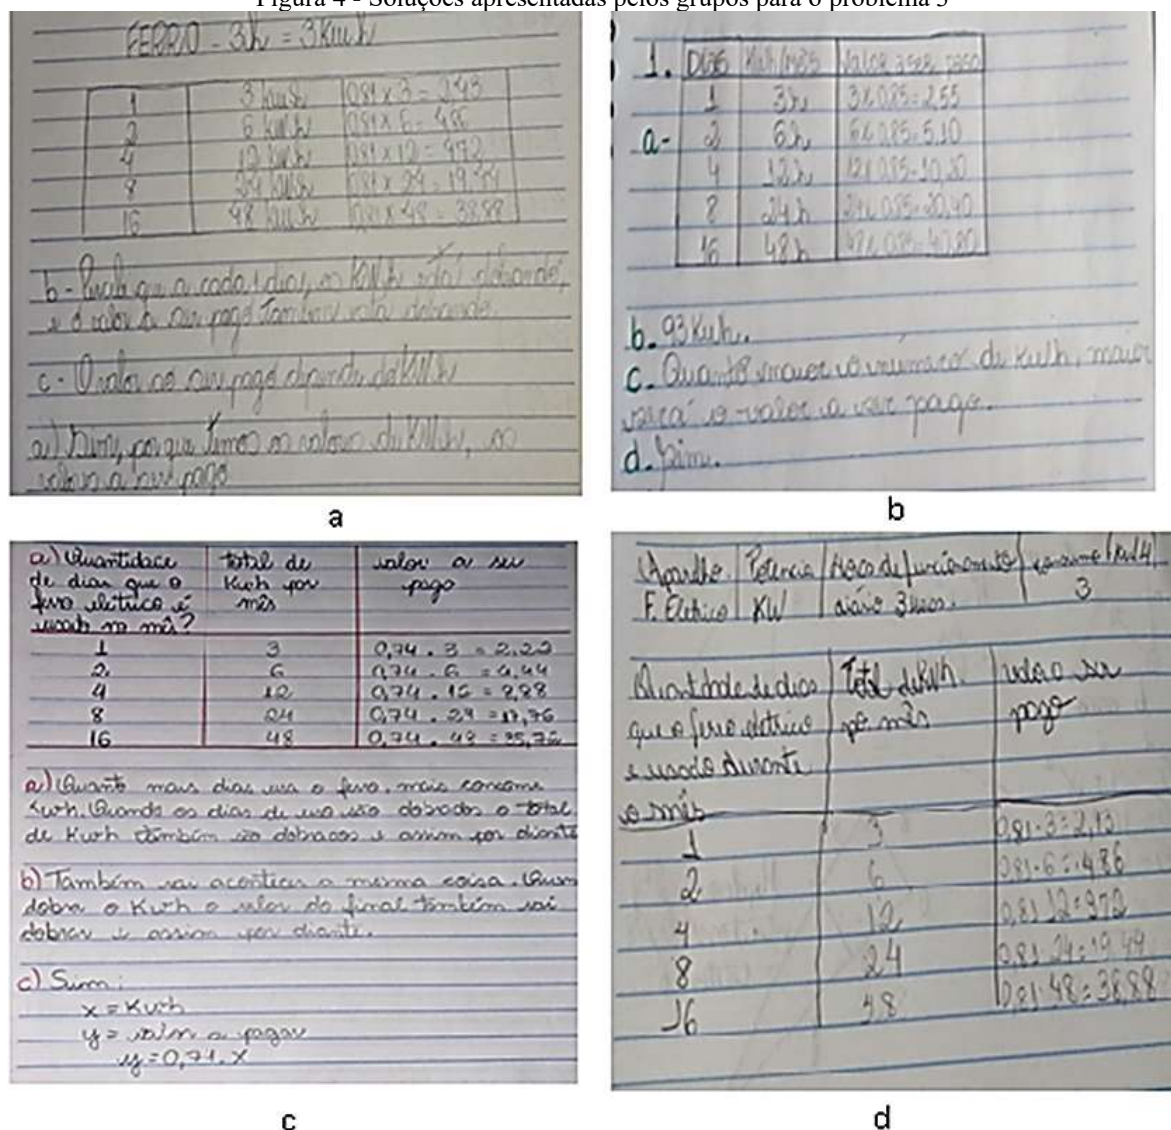 Figura 4 - Soluções apresentadas pelos grupos para o problema 3
FERRO - 3h = 3Kwh
1 3 kwh 0,81 x 3 = 2,43
2 6 kwh 0,81 x 6 = 4,86
4 12 kwh 0,81 x 12 = 9,72
8 24 kwh 0,81 x 24 = 19,44
16 48 kwh 0,81 x 48 = 38,88
b - que a cada dias, os KWh está dobrando,
e o valor a ser pago também está dobrando.
c - O valor ao ser pago depende do KWh
a) Sim, porque temos os valores de KWh, os
valores a ser pago
a
1. DIAS Kwh/mês Valor a ser pago
1 3h 3x0,85=2,55
a- 2 6h 6x0,85=5,10
4 12h 12x0,85=10,20
8 24h 24x0,85=20,40
16 48h 48x0,85=40,80
b. 93 Kwh.
c. Quanto maior o número de Kwh, maior
será o valor a ser pago.
d. Sim.
b
a) Quantidade total de valor a ser
de dias que o Kwh por pago
ferro elétrico é mês
usado no mês?
1 3 0,74 . 3 = 2,22
2 6 0,74 . 6 = 4,44
4 12 0,74 . = 8,88
8 24 0,74 . 24 = 17,76
16 48 0,74 . 48 = 35,
a) Quanto mais dias usa o ferro, mais consome
Kwh. Quando os dias de uso são dobrados o total
de Kwh também são dobrados e assim por diante
b) Também vai acontecer a mesma coisa. Quan
dobra o Kwh o valor do final também vai
dobrar e assim por diante.
c) Sim:
x = Kwh
y = valor a pagar
y = 0,74.x
c
Aparelho Potencia Horas de funcionamento consumo
F. Elétrico KW diário 3 horas. 3
Quantidade de dias Total de Kwh valor a ser
que o ferro elétrico por mês pago
é usado durante
o mês
1 3 0,81.3=2,
2 6 0,81.6=4,86
4 12 0,81.12=9,72
8 24 0,81.24=19,44
16 48 0,81.48=38,88
d